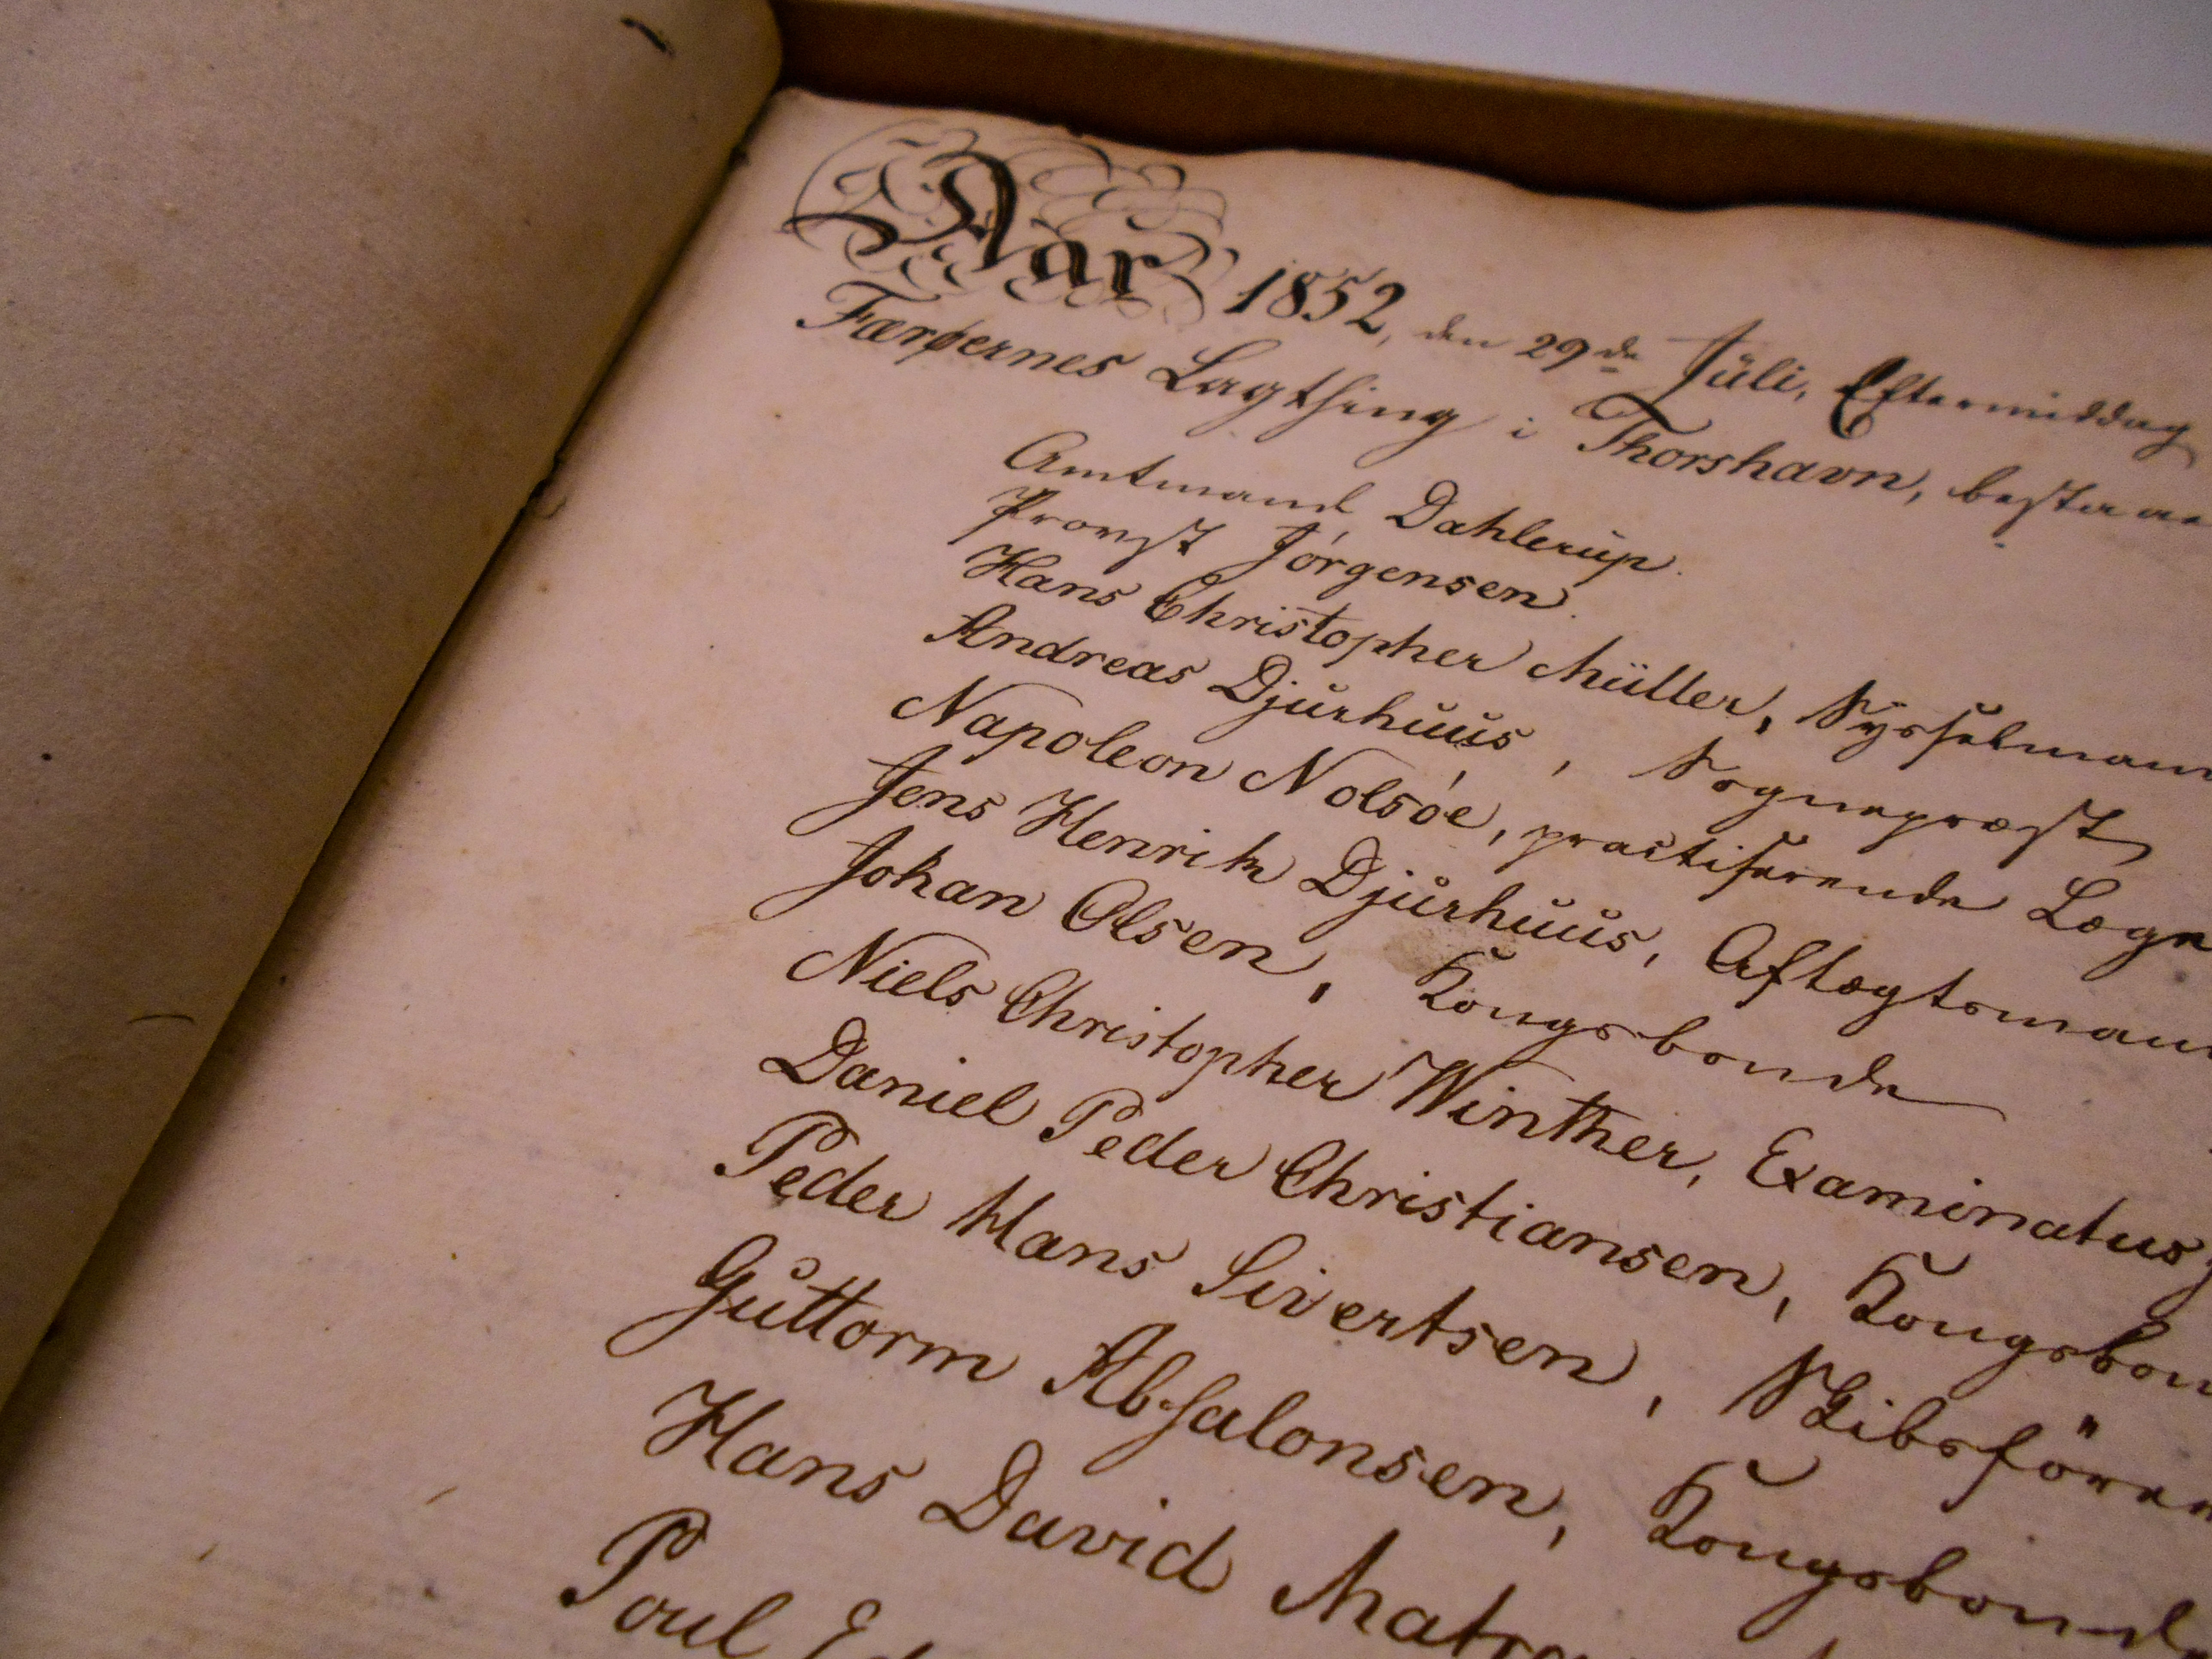 Aar 1852, den 29de Jüli, Eftermiddag
Færøernes Lagthing i Thorshavn, bestaae
Amtmand Dahlerup.
Provst Jórgensen.
Hans Christopher Müller, Sysselman
Andreas Djurhuus, Sognepræst
Napoleon Nolsóe, practiserende Læge
Jens Henrik Djurhuus, Aftægtsman
Johan Olsen, Kongsbonde
Niels Christopher Winther, Examinatus
Daniel Peder Christiansen, Kongsbon
Peder Hans Sivertsen, Skibsförer
Guttorm Absalonsen, Kongsbonde
Hans David Matra
Poul